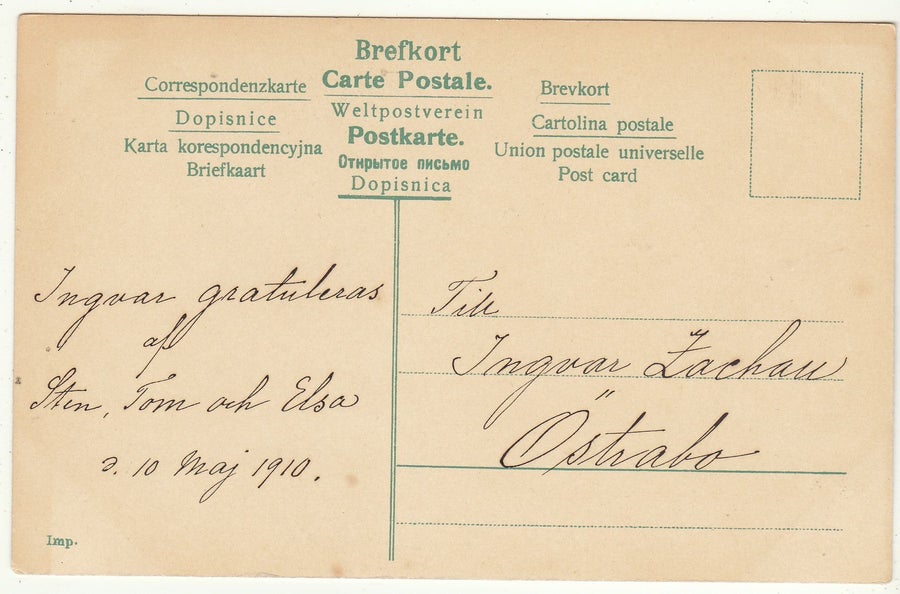 Brefkort
Carte Postale.
Weltpostverein
Postkarte.
Открытое письмо
Dopisnica
Correspondenzkarte
Dopisnice
Karta korespondencyjna
Briefkaart
Brevkort
Cartolina postale
Union postale universelle
Post card
Ingvar gratuleras
af
Sten, Tom och Elsa
d. 10 Maj 1910.
Till
Ingvar Zachau
Östrabo
Imp.